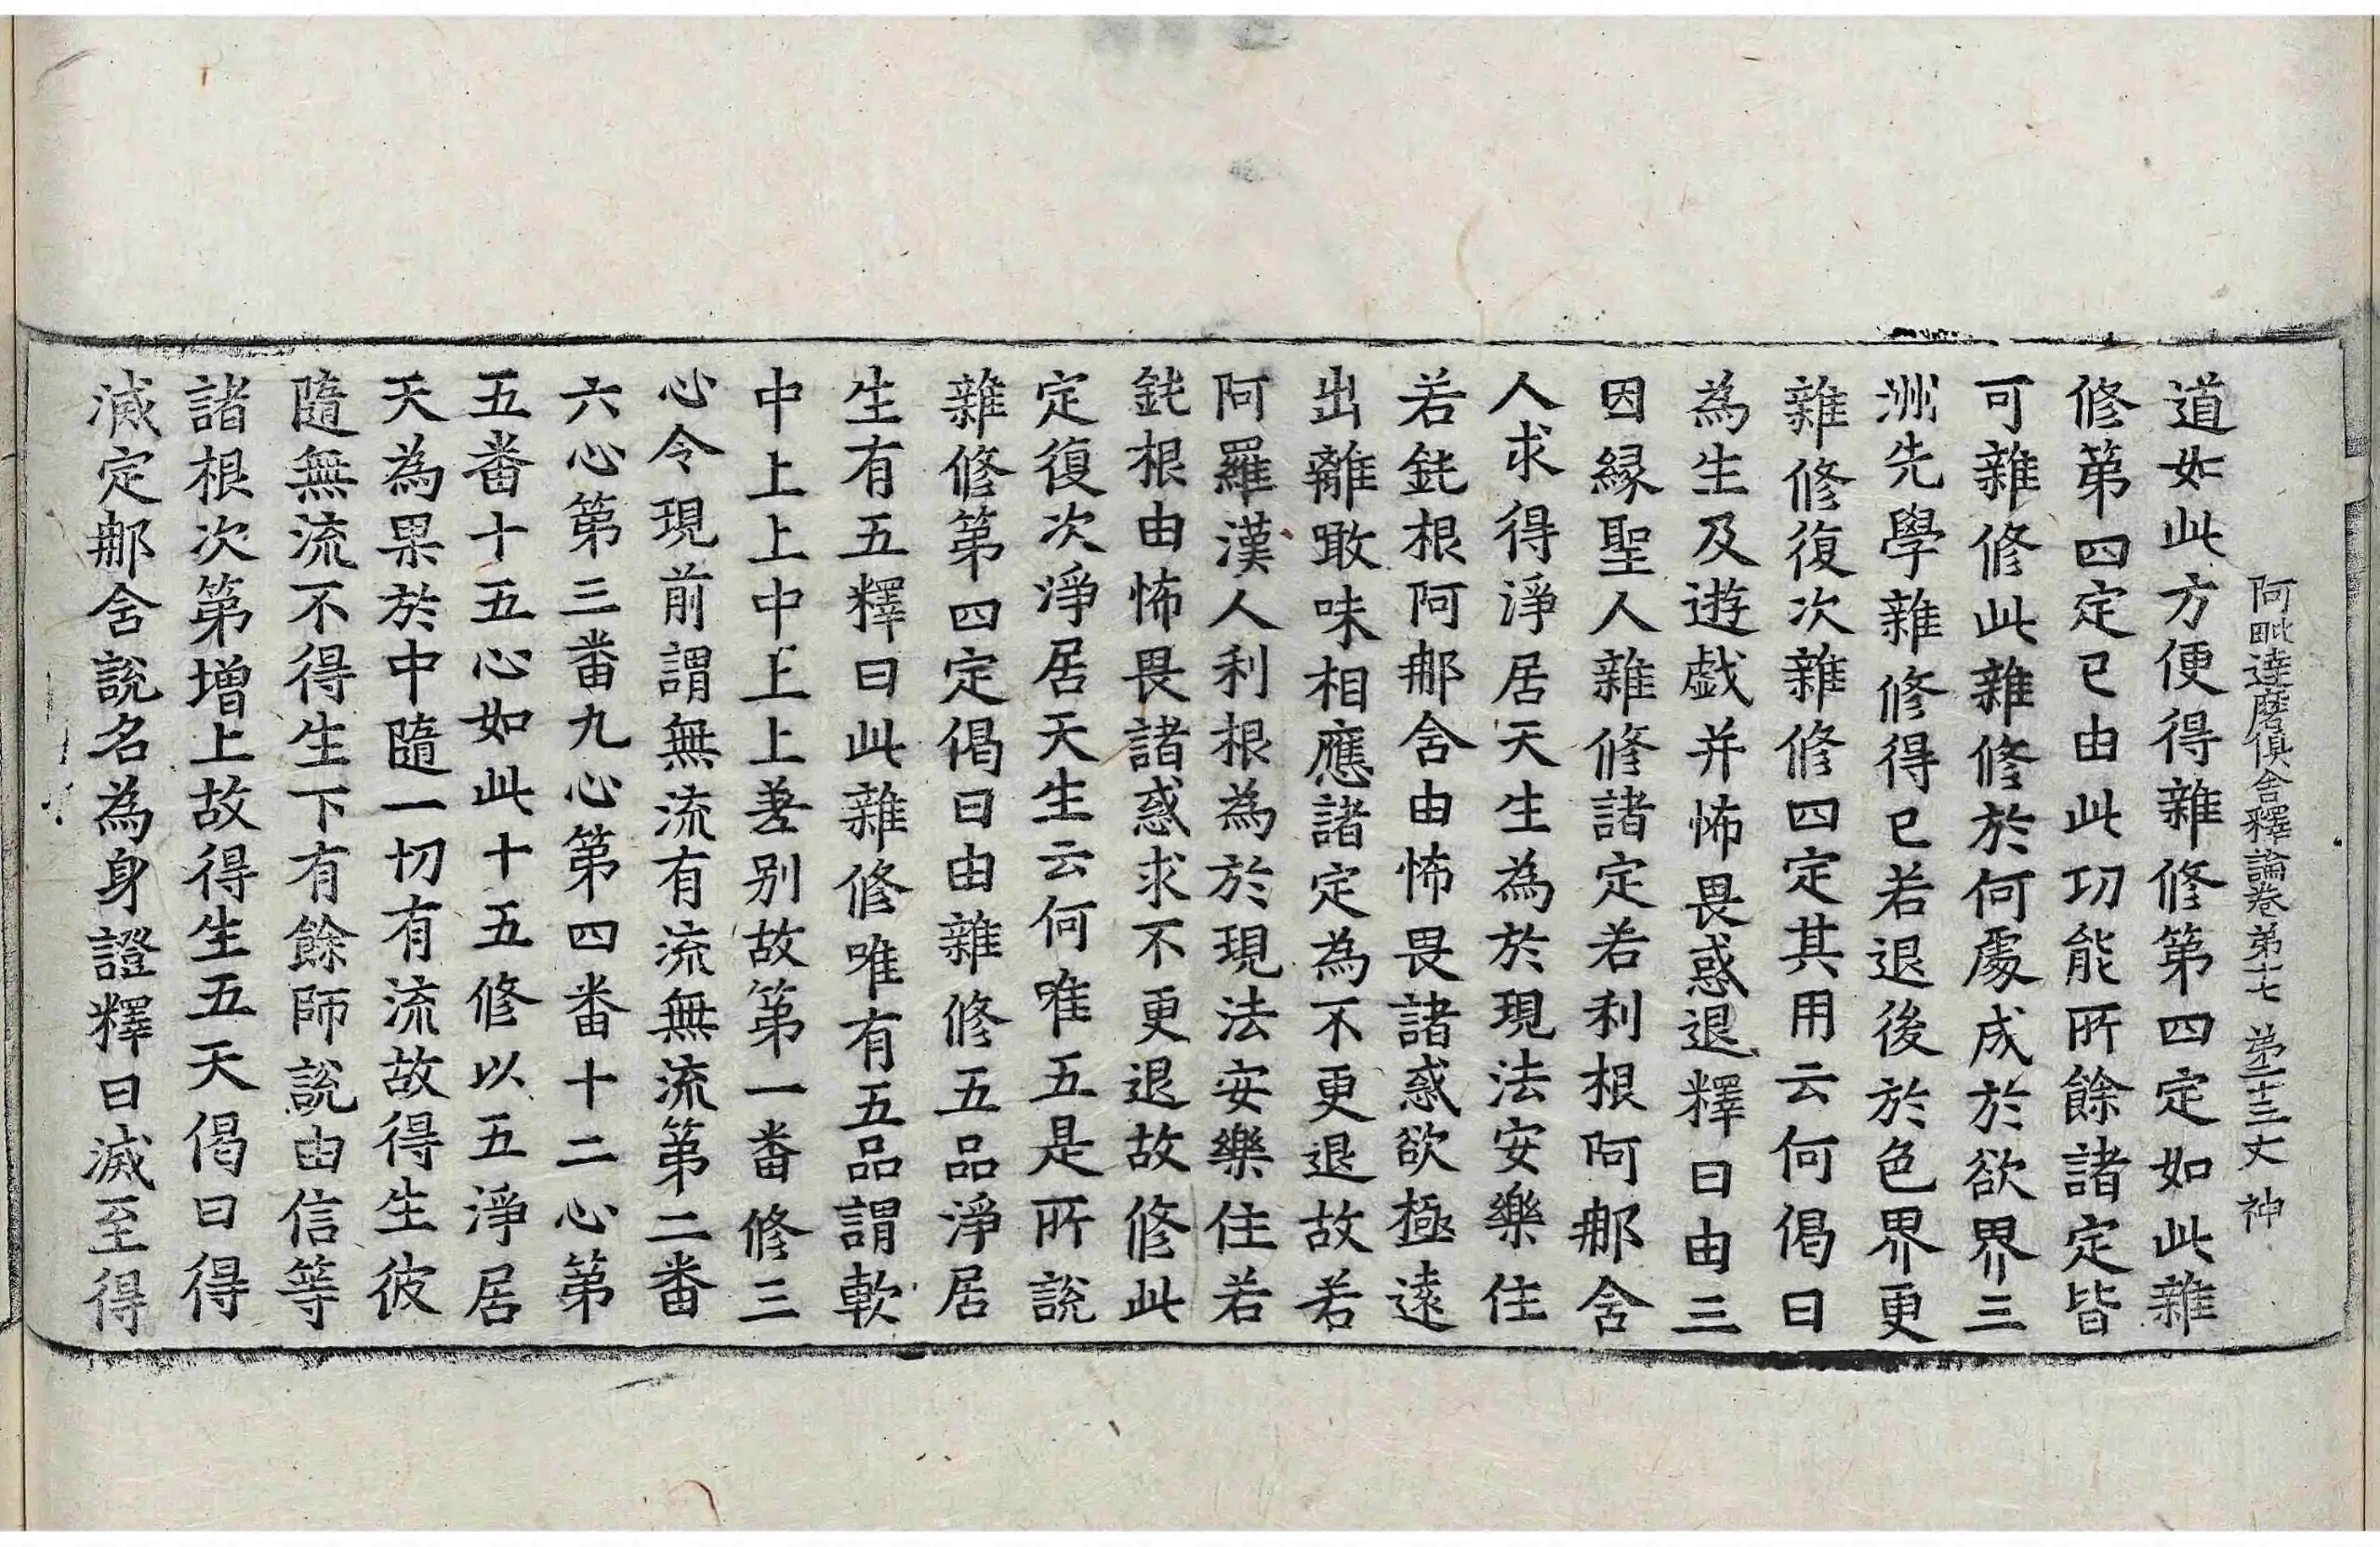 阿毗達磨俱舍釋論卷第十七 第二十三丈 神
道如此方便得雜修第四定如此雜
修第四定已由此功能所餘諸定皆
可雜修此雜修於何處成於欲界三
洲先學雜修得已若退後於色界更
雜修復次雜修四定其用云何偈曰
為生及遊戲并怖畏惑退釋曰由三
因緣聖人雜修諸定若利根阿那舍
人求得淨居天生為於現法安樂住
若鈍根阿那舍由怖畏諸惑欲極遠
出離噉味相應諸定為不更退故若
阿羅漢人利根為於現法安樂住若
鈍根由怖畏諸惑求不更退故修此
定復次淨居天生云何唯五是所說
雜修第四定偈曰由雜修五品淨居
生有五釋曰此雜修唯有五品謂軟
中上上中上上差別故第一番修三
心令現前謂無流有流無流第二番
六心第三番九心第四番十二心第
五番十五心如此十五修以五淨居
天為果於中隨一切有流故得生彼
隨無流不得生下有餘師說由信等
諸根次第增上故得生五天偈曰得
滅定那舍說名為身證釋曰滅至得